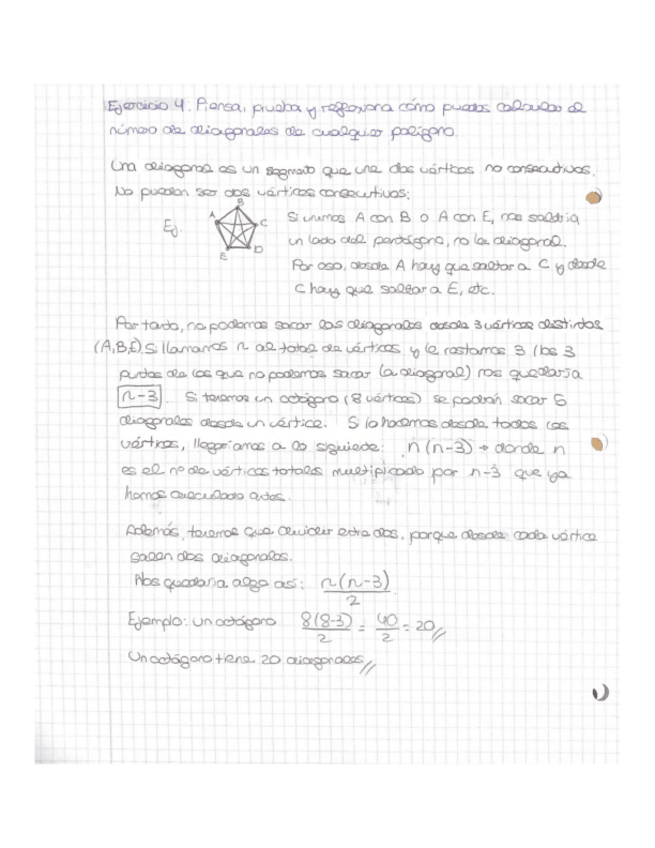 Ejercicio 4. Piensa, prueba y reflexiona cómo puedes calcular el
número de diagonales de cualquier polígono.
Una diagonal es un segmento que une dos vértices no consecutivos.
No pueden ser dos vértices consecutivos:
Ej.
A B C D E
Si unimos A con B o A con E, nos saldría
un lado del pentágono, no la diagonal.
Por eso, desde A hay que saltar a C y desde
C hay que saltar a E, etc.
Por tanto, no podemos sacar las diagonales desde 3 vértices distintos
(A,B,E). Si llamamos n al total de vértices y le restamos 3 (los 3
puntos de los que no podemos sacar la diagonal) nos quedaría
n-3. Si tenemos un octógono (8 vértices) se podrán sacar 5
diagonales desde un vértice. Si lo hacemos desde todos los
vértices, llegaríamos a lo siguiente: n(n-3) → donde n
es el nº de vértices totales multiplicado por n-3 que ya
hemos calculado antes.
Además, tenemos que dividir entre dos, porque desde cada vértice
salen dos diagonales.
Nos quedaría algo así: n(n-3)/2
Ejemplo: un octógono 8(8-3)/2 = 40/2 = 20//
Un octógono tiene 20 diagonales//